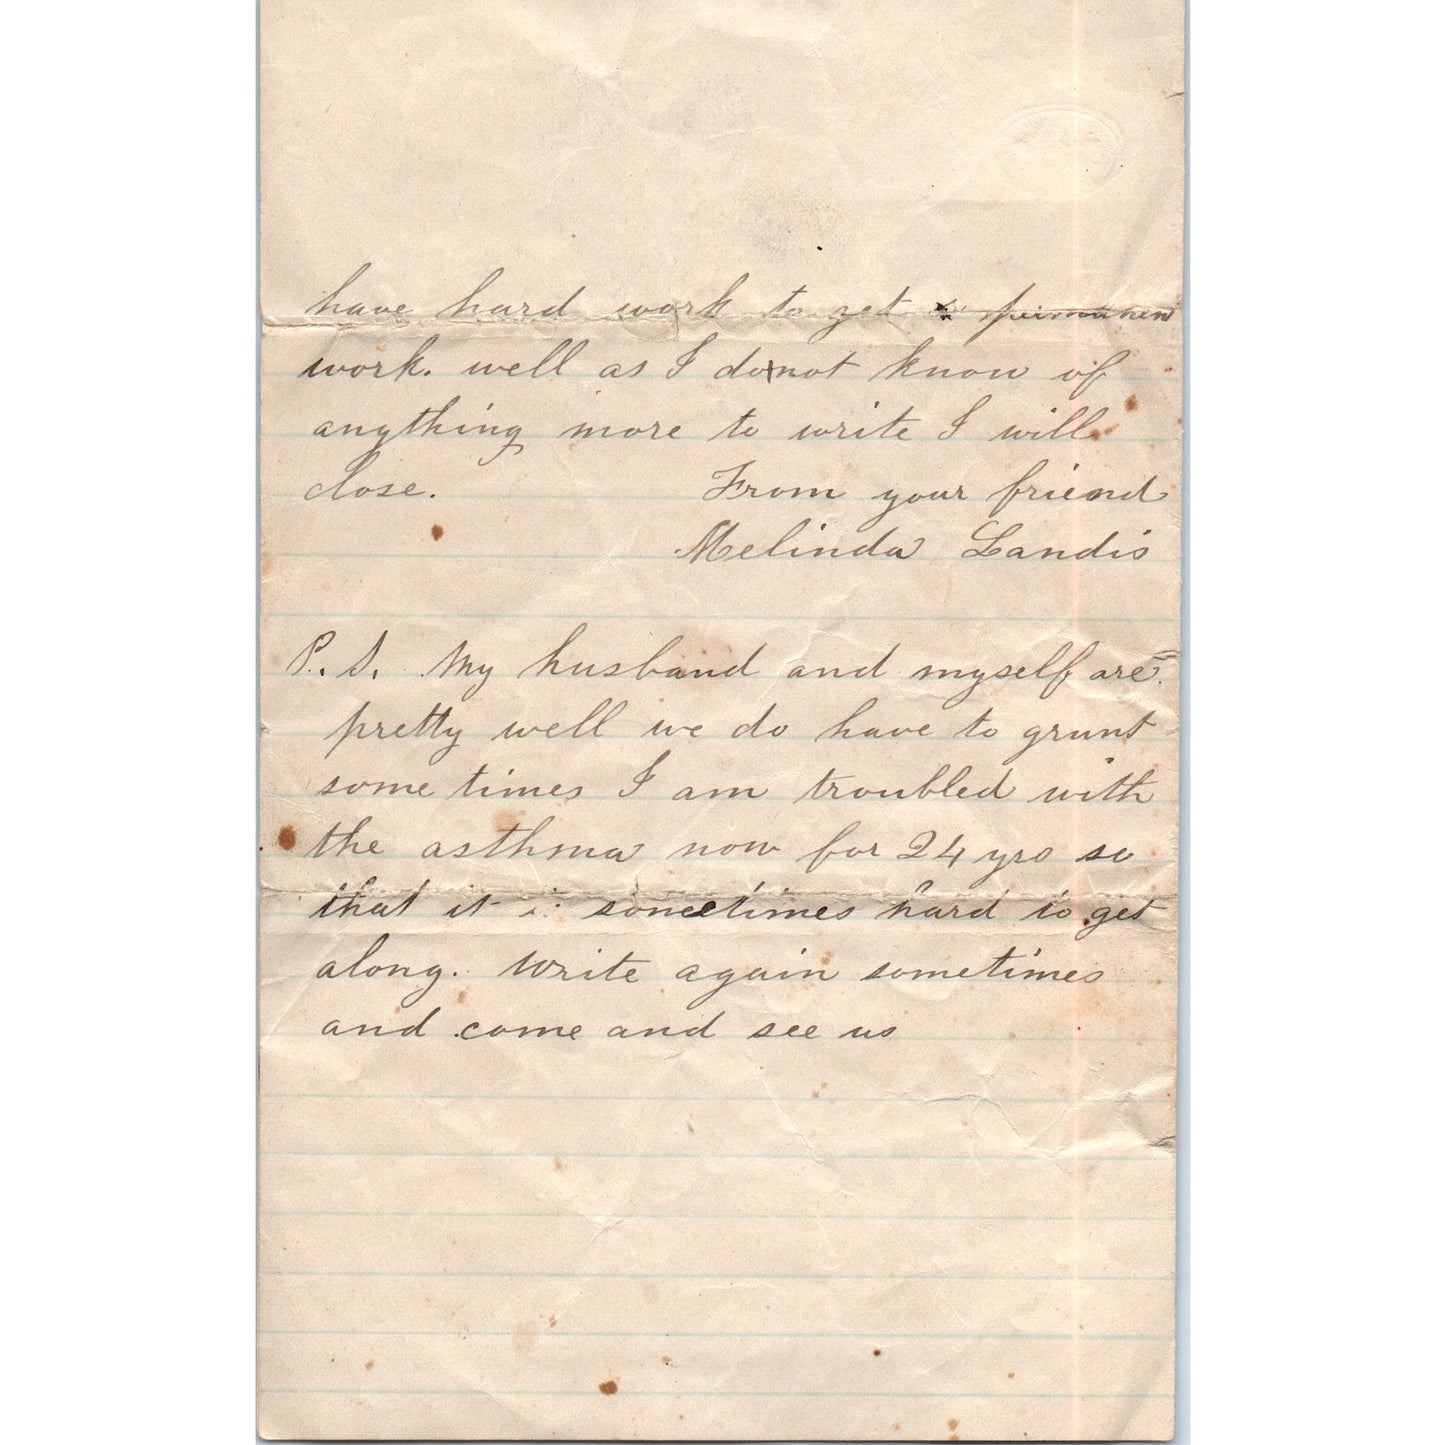 have hard work to get permanen
work. well as I do not know of
anything more to write I will
close. From your friend
Melinda Landis
P. S. My husband and myself are
pretty well we do have to grunt
some times I am troubled with
the asthma now for 24 yrs so
that it i sometimes hard to get
along. Write again sometimes
and come and see us